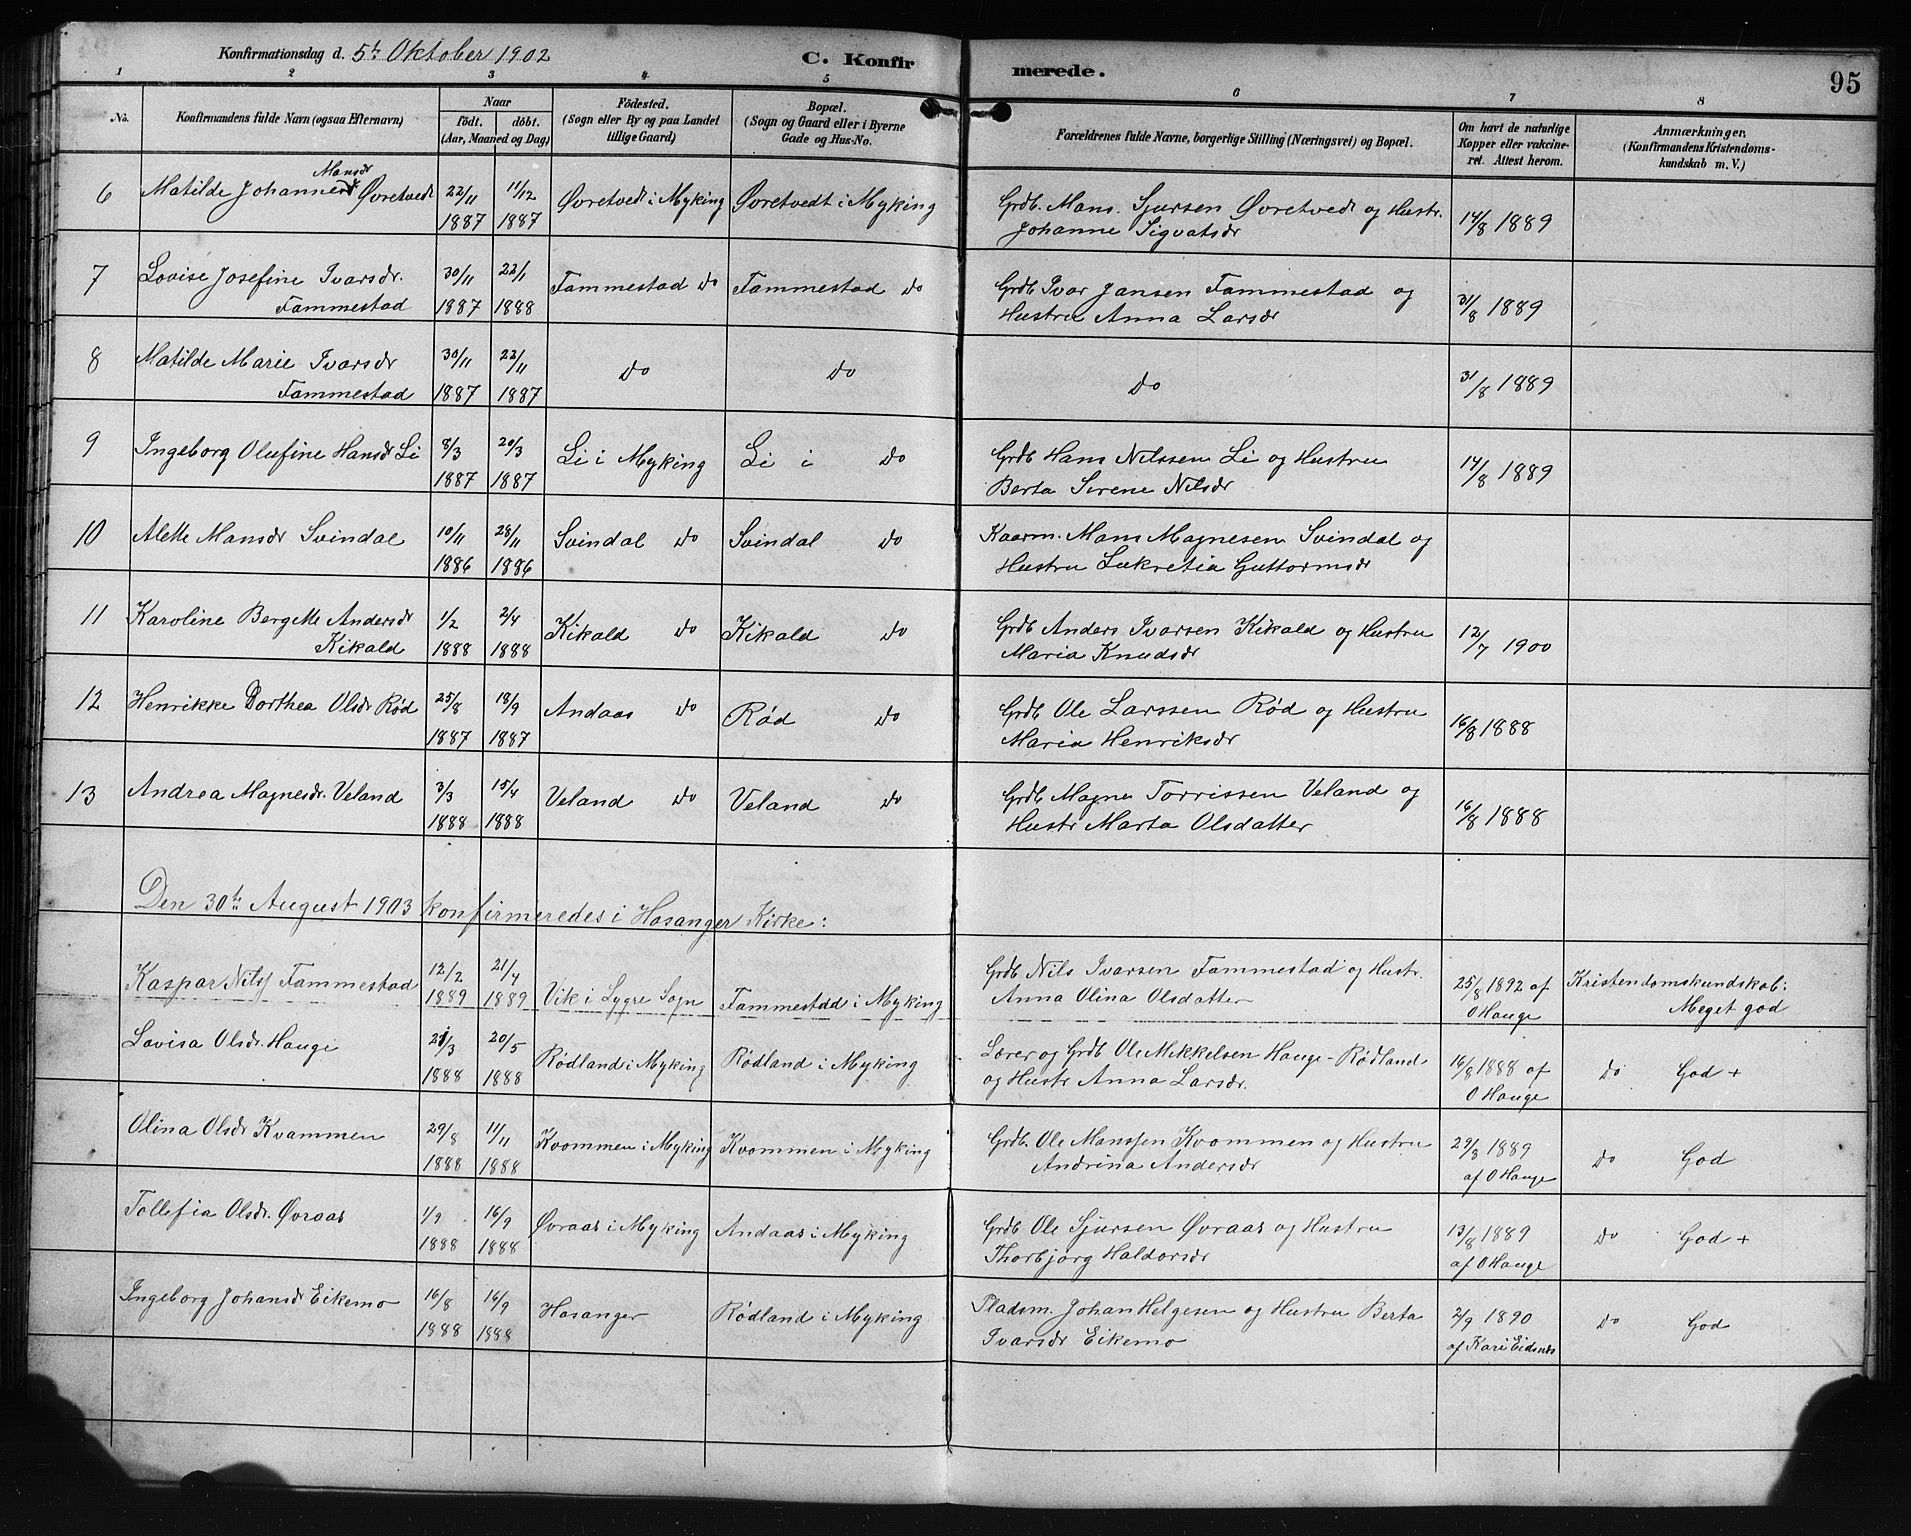 Konfirmationsdag d. 5te Oktober 1902 C. Konfirmerede. 95
1 2 3 4 5 6 7 8
No. Konfirmandens fulde Navn (ogsaa Efternavn) Naar födt. döbt. (Aar, Maaned og Dag) Födested. (Sogn eller By og paa Landet tillige Gaard) Bopæl. (Sogn og Gaard eller i Byerne Gade og Hus-No. Forældrenes fulde Navne, borgerlige Stilling (Næringsvei) og Bopæl. Om havt de naturlige Kopper eller vakcineret. Attest herom. Anmærkninger. (Konfirmandens Kristendomskundskab m. V.)
Mansdr
6 Matilde Johanne Øvretvedt 22/11 1887 11/12 1887 Øvretvedt i Myking Øvretvedt i Myking Grdb. Mans Sjursen Øvretvedt og Hustr. Johanne Sigvatsdr 14/8 1889
7 Lovise Josefine Ivarsdr. Fammestad 30/11 1887 22/1 1888 Fammestad Do Fammestad Do Grdb Ivar Jansen Fammestad og Hustru Anna Larsdr 31/8 1889
8 Matilde Marie Ivarsdr Fammestad 30/11 1887 22/11 1887 Do Do Do 31/8 1889
9 Ingeborg Olufine Hansdr Li 8/3 1887 20/3 1887 Li i Myking Li i Do Grdb Hans Nilssen Li og Hustru Berta Serene Nilsdr 14/8 1889
10 Alette Mansdr Svindal 10/11 1886 28/11 1886 Svindal Do Svindal Do Kaarm. Mans Magnesen Svindal og Hustru Lukretia Guttormsdr
11 Karoline Bergette Andersdr Kikald 1/2 1888 2/4 1888 Kikald Do Kikald Do Grdb Anders Ivarsen Kikald og Hustru Maria Knudsdr 12/7 1900
12 Henrikke Dorthea Olsdr Rød 25/8 1887 18/9 1887 Andaas Do Rød Do Grdb Ole Larssen Rød og Hustru Maria Henriksdr 16/8 1888
13 Andrea Magnesdr. Veland 3/3 1888 15/4 1888 Veland Do Veland Do Grdb Magne Torrissen Veland og Hustr Marta Olsdatter 16/8 1888
Den 30te August 1903 konfirmeredes i Hosanger Kirke:
Kaspar Nilss Fammestad 12/2 1889 21/4 1889 Vik i Lygre Sogn Fammestad i Myking Grdb Nils Ivarsen Fammestad og Hustr. Anna Olina Olsdatter 25/8 1892 af O Hauge Kristendomskundskab: Meget god
Lovisa Olsdr. Hauge 21/3 1888 20/5 1888 Rødland i Myking Rødland i Myking Lærer og Grdb Ole Mikkelsen Hauge-Rødland og Hustr Anna Larsdr. 16/8 1888 af O Hauge Do God +
Olina Olsdr Kvammen 29/8 1888 11/11 1888 Kvommen i Myking Kvommen i Myking Grdb. Ole Manssen Kvommen og Hustru Andrina Andersdr 29/8 1889 af O Hauge Do God
Tollefia Olsdr. Øvraas 1/9 1888 16/9 1888 Øvraas i Myking Andaas i Myking Grdb Ole Sjursen Øvraas og Hustru Thorbjørg Haldorsdr 13/8 1889 af O Hauge Do God +
Ingeborg Johansdr Eikemo 16/8 1888 16/9 1888 Hosanger Rødland i Myking Pladsm. Johan Helgesen og Hustru Berta Ivarsdr Eikemo 2/9 1890 af Kari Eidsnes Do God